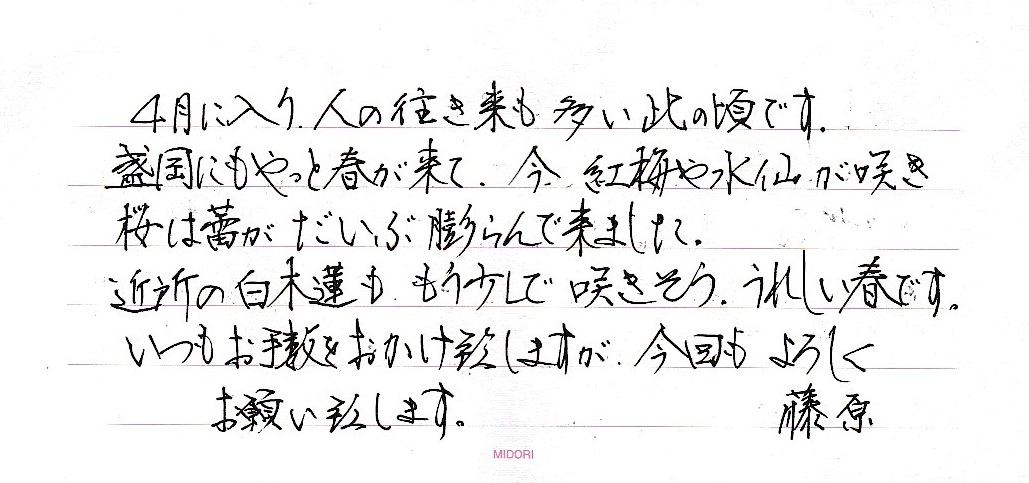 4月に入り、人の往き来も多い此の頃です。
盛岡にもやっと春が来て、今、紅梅や水仙が咲き
桜は蕾がだいぶ膨らんで来ました。
近所の白木蓮も、もう少しで咲きそう。うれしい春です。
いつもお手数をおかけ致しますが、今回もよろしく
お願い致します。 藤原
MIDORI